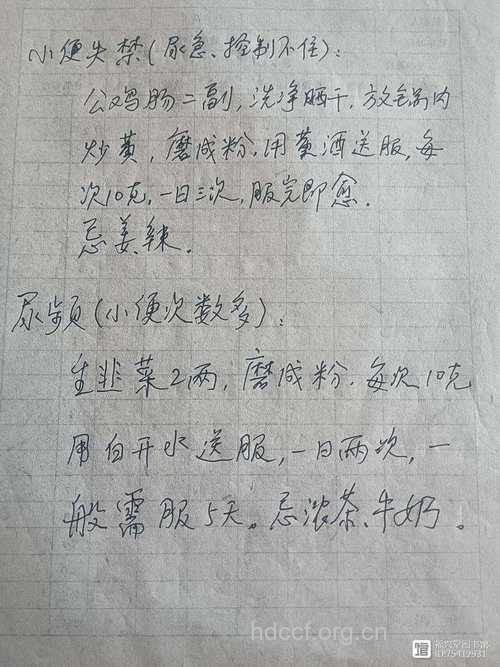 小便失禁(尿急、控制不住):
公鸡肠二副,洗净晒干,放锅内
炒黄,磨成粉,用黄酒送服,每
次10克,一日三次,服完即愈.
忌姜、辣.
尿频(小便次数多):
生韭菜2两,磨成粉.每次10克
用白开水送服,一日两次,一
般需服5天。忌浓茶、牛奶。
hdccf.org.cn